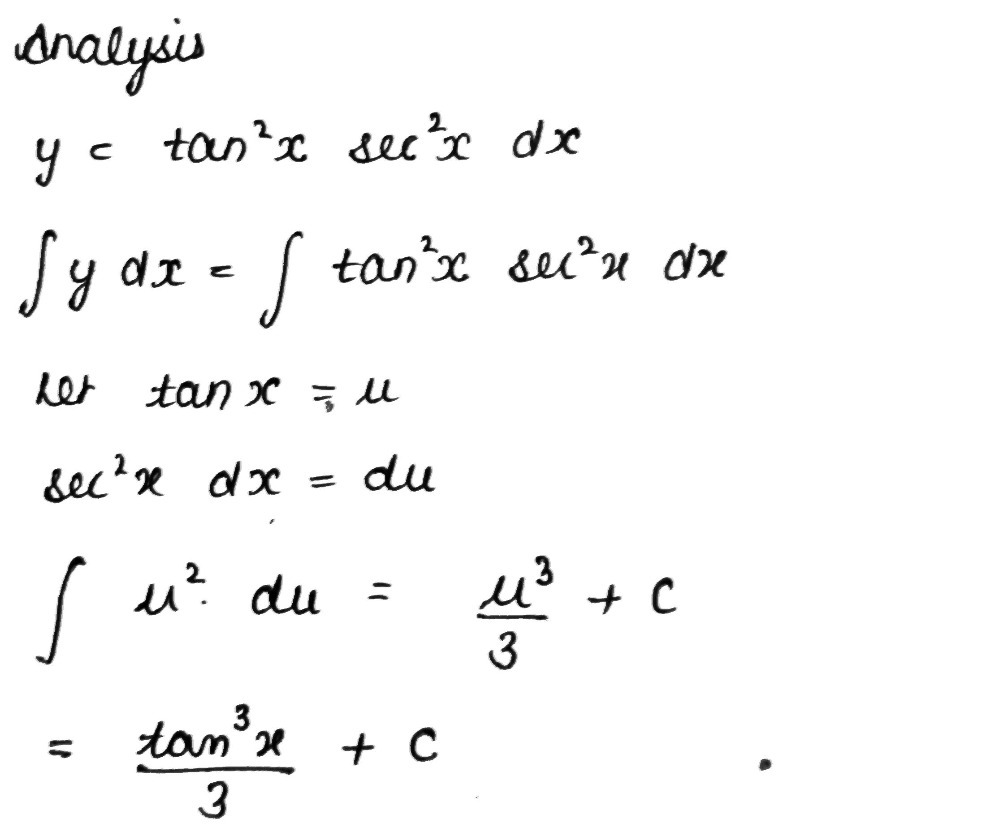 Analysis
y = tan²x sec²x dx
∫ y dx = ∫ tan²x sec²x dx
Let tan x = u
sec²x dx = du
∫ u² du = u³/3 + C
= tan³x/3 + C